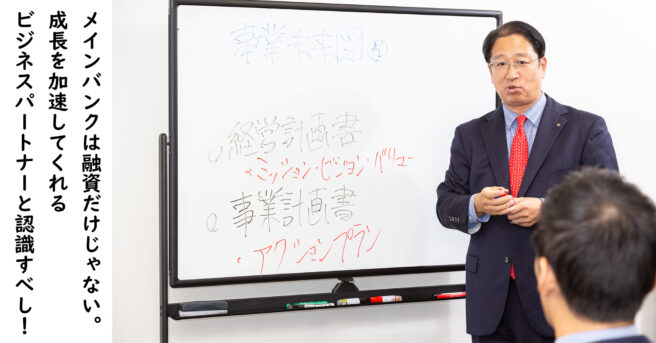 メインバンクは融資だけじゃない。
成長を加速してくれる
ビジネスパートナーと認識すべし！
事業未来図
経営計画書
・ミッション・ビジョン・バリュー
事業計画書
・アクションプラン